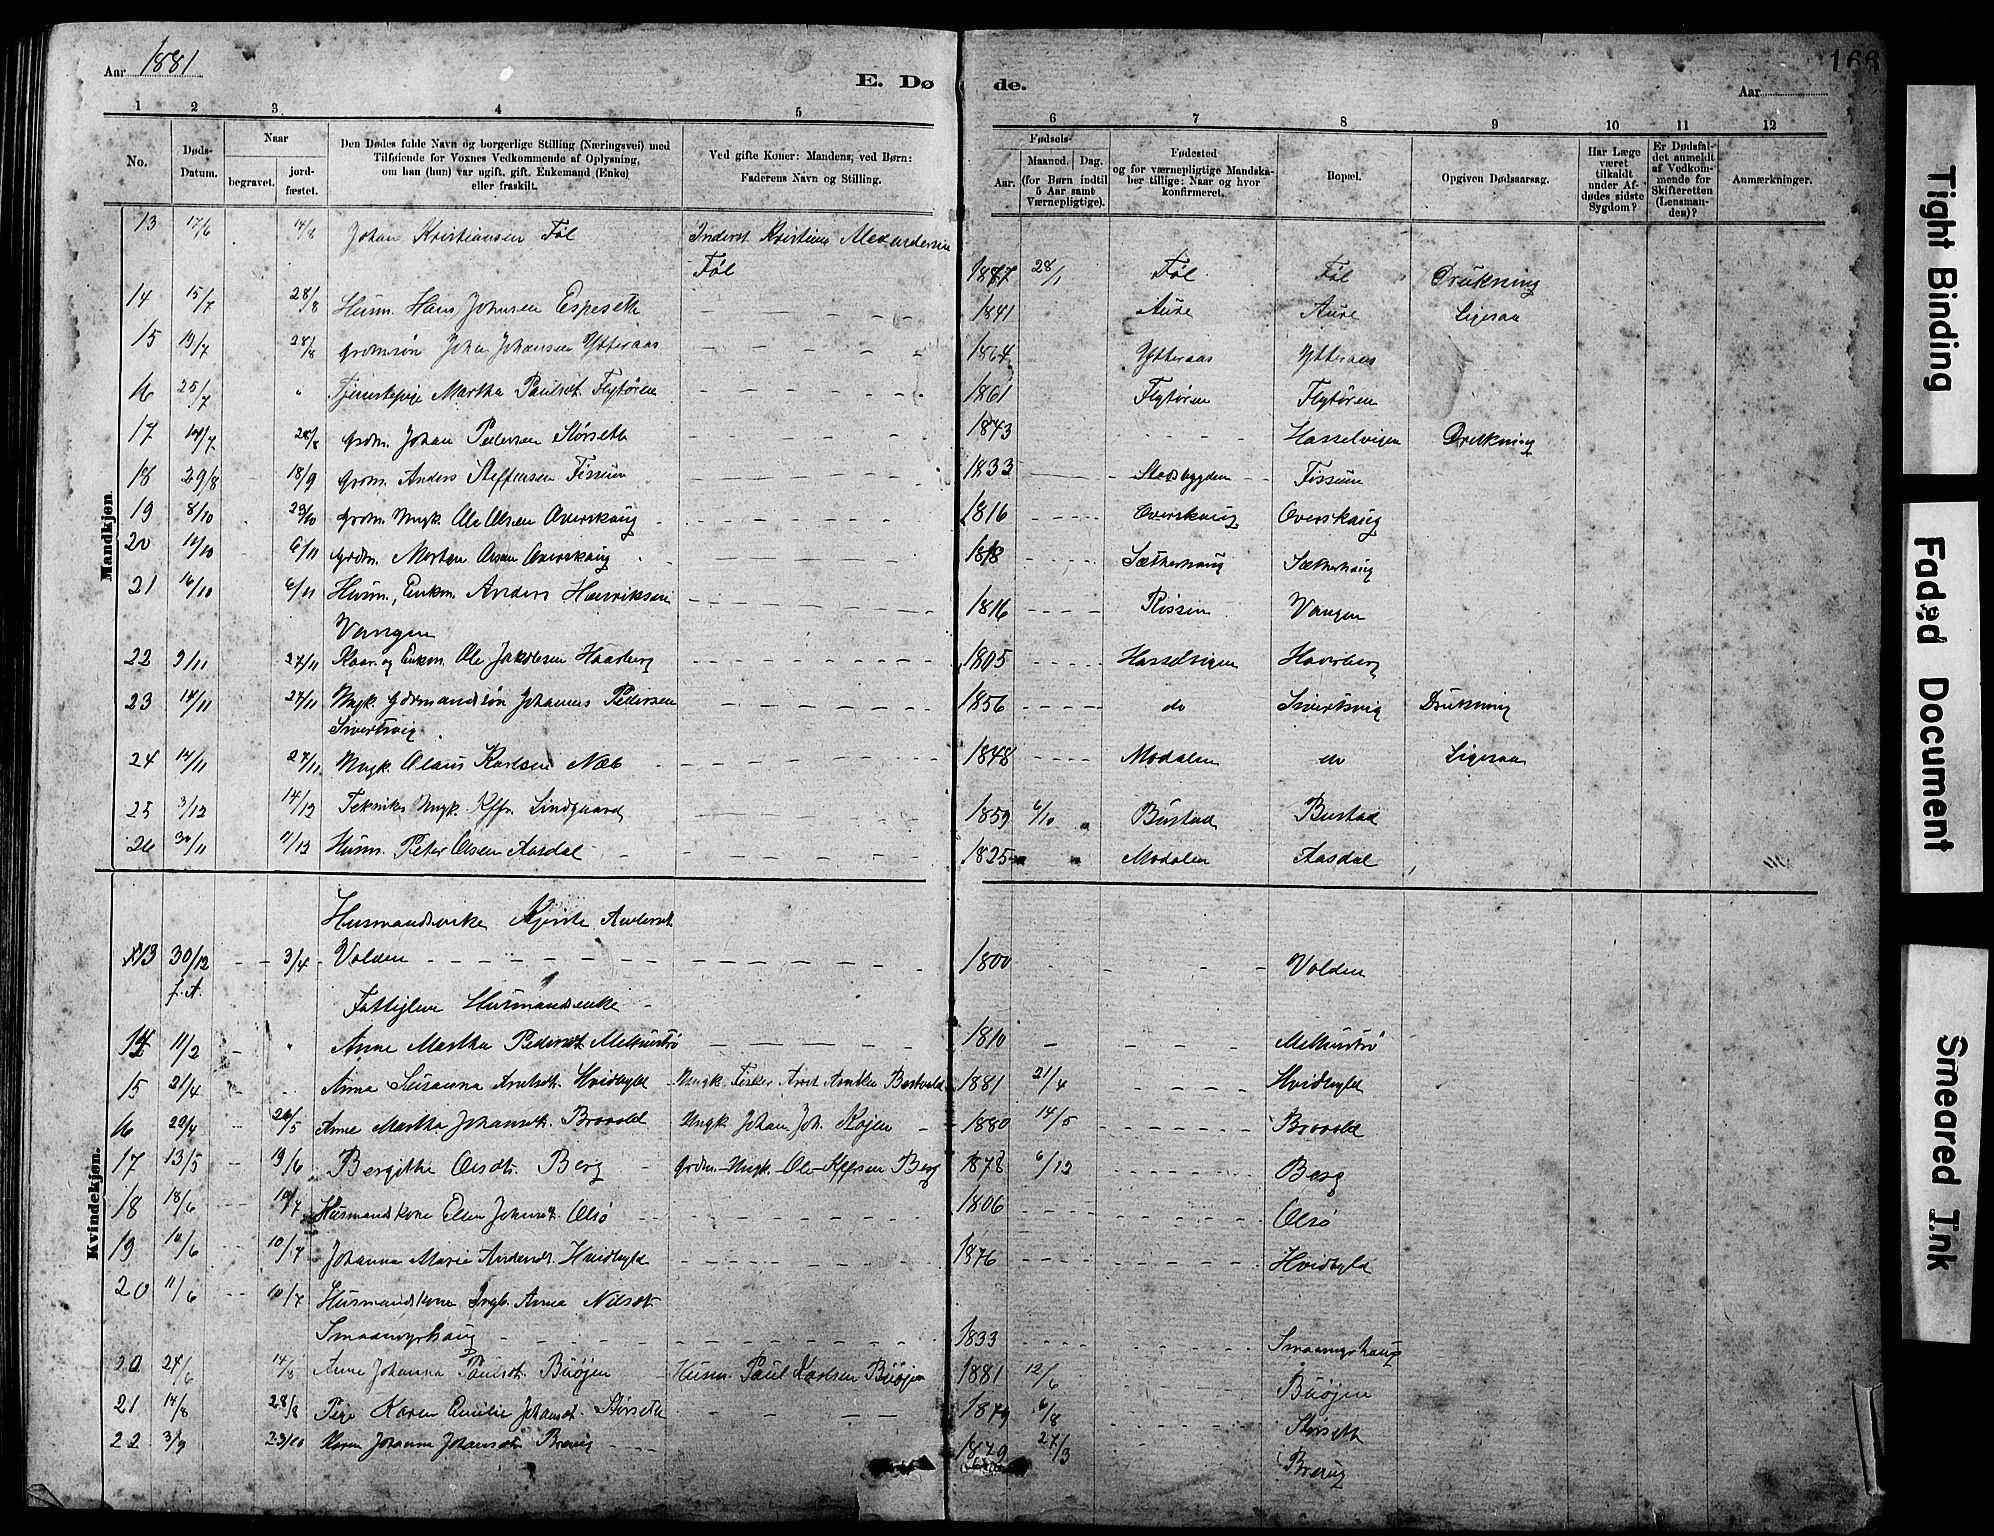 Aar 1881
E. Dø
de.
Aar
166
1 2 3 4 5
6 7 8 9 10 11 12
No.
Døds-
Datum.
Naar
begravet.
jord-
fæstet.
Den Dødes fulde Navn og borgerlige Stilling (Næringsvei) med
Tilføiende for Voxnes Vedkommende af Oplysning,
om han (hun) var ugift, gift, Enkemand (Enke)
eller fraskilt.
Ved gifte Koner: Mandens, ved Børn:
Faderens Navn og Stilling.
Fødsels-
Aar.
Maaned. Dag.
(for Børn indtil
5 Aar samt
Værnepligtige).
Fødested
og for værnepligtige Mandska-
ber tillige: Naar og hvor
konfirmeret.
Bopæl.
Opgiven Dødsaarsag.
Har Læge
været
tilkaldt
under Af-
dødes sidste
Sygdom?
Er Dødsfal-
det anmeldt
af Vedkom-
mende for
Skifteretten
(Lensman-
den)?
Anmærkninger.
Mandkjøn.
13 17/6 14/8 Johan Kristiansen Føl Inderst Kristian Alexandersen
Føl 28/1 Føl Føl Drukning
14 15/7 28/8 Husm. Hans Johnsen Espeseth 1841 Aure Aure Ligesaa
15 19/7 28/8 Grdmsøn Johan Johansen Ytteraas 1864 Ytteraas Ytteraas
16 25/7 " Tjenestepige Martha Paulsdt. Flytøren 1861 Flytøren Flytøren
17 14/7 28/8 Grdm. Johan Pedersen Størseth 1843 Hasselvigen Drukning
18 29/8 18/9 Grdm. Anders Steffensen Fissum 1833 Stadsbygden Fissum
19 8/10 23/10 Grdm. Ungk. Ole Olsen Overskaug 1816 Overskaug Overskaug
20 14/10 6/11 Grdm. Morten Olsen Overskaug 1818 Sætherhaug Sætherhaug
21 16/10 6/11 Husm., Enkm. Anders Henriksen
Vangen 1816 Rissen Vangen
22 9/11 27/11 Kaar. og Enkm. Ole Jakobsen Haarberg 1805 Hasselvigen Haarberg
23 14/11 27/11 Ungk. Gdrmandssøn Johannes Pedersen
Sivertsvig 1856 do Sivertsvig Drukning
24 14/11 27/11 Ungk. Olaus Karlsen Næb 1848 Modalen do Ligesaa
25 3/12 14/12 Ungk. Lindgaard 1859 6/10 Bustad Bustad
26 30/11 11/12 Husm. Peter Olsen Aasdal 1825 Modalen Aasdal
Kvindekjøn.
Husmandsenke Kjerste Andersdt
13 30/12 3/4 Volden 1800 Volden
f. A.
Fattiglem Husmandsenke
14 11/2 " Anne Martha Pedersdt. Melhustrø 1810 Melhustrø
15 21/4 Anna Susanna Arntsdt. Hvidbyld Ungk. Fisker Arnt 1881 21/4 Hvidbyld
16 22/4 26/5 Anne Martha Johansdt. Brovold Ungk. Johan Joh. Køjen 1880 14/5 Brovold
17 13/5 19/6 Bergithe Olsdt. Berg Grdm. Ungk. Ole Berg 1878 6/12 Berg
18 18/6 10/7 Husmandskone Ellen Johnsdt. Olsø 1806 Olsø
19 10/6 10/7 Johanna Marie Andersdt. Hvidbyld 1876 Hvidbyld
20 11/6 10/7 Husmandskone Ingb. Anna Nilsdt
Smaamyrhaug 1833 Smaamyrhaug
20 24/6 14/8 Anne Johanna Paulsdt. Buøjen Husm. Paul Karlsen Buøjen 1881 12/6 Buøjen
21 14/8 28/8 Pige Karen Emilie Johansdt. Størseth 1879 6/8 Størseth
22 3/9 23/10 Karen Johanna Johansdt. 1879 27/3
Tight Binding
Faded Document
Smeared Ink